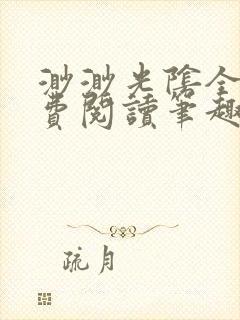 渺渺光陰全
費閱讀筆趣
疏月